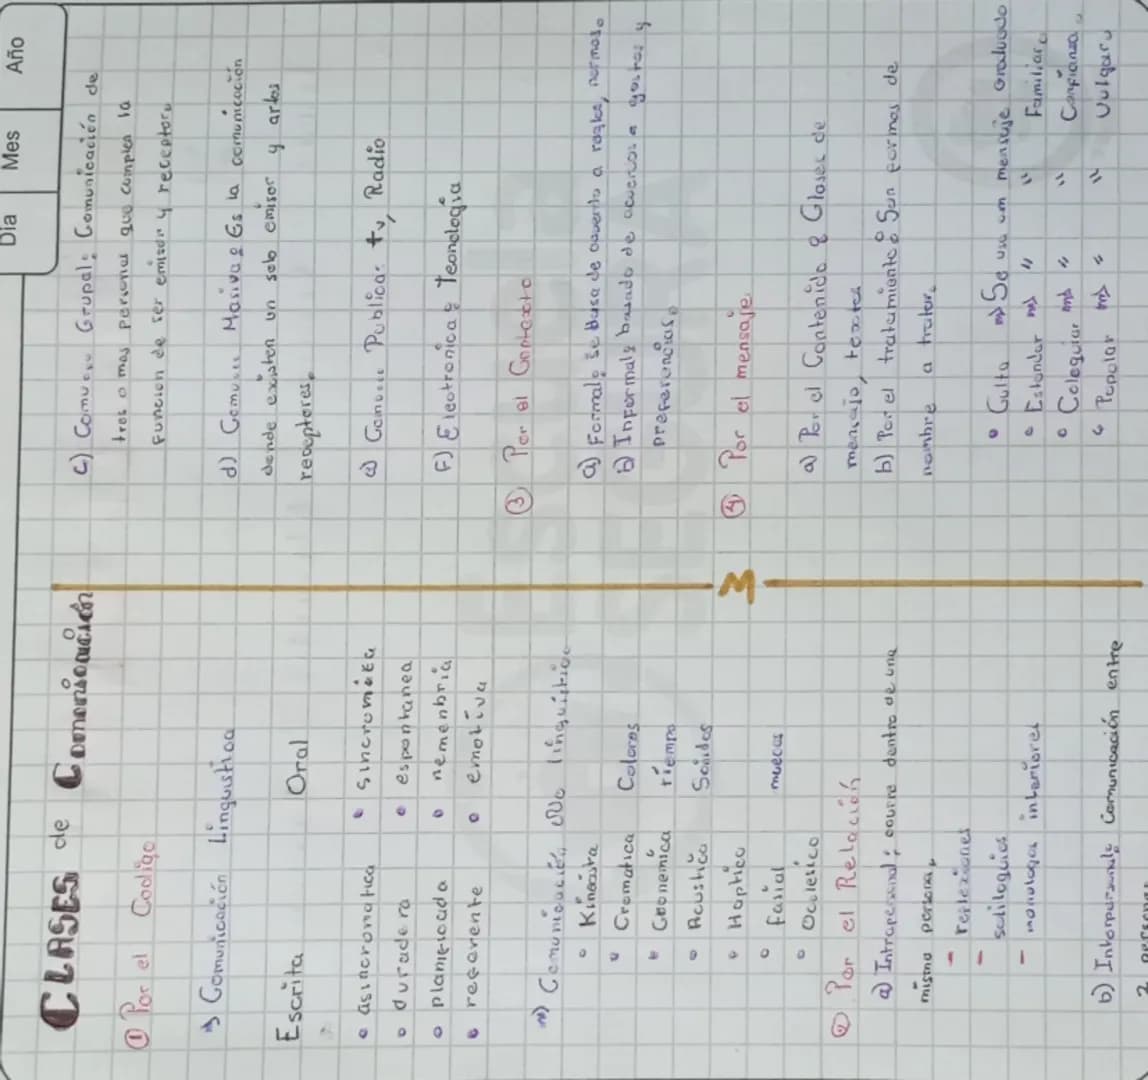 Día Mes Año
CLASES de Comunicación
① Por el Codigo
⇒ Comunicación Linguistica
Escrita Oral
• asincromatica • sincromica
• duradera • espontanea
• planificada • nemenbria
• referente • emotiva
⇒) Comunicación No linguistica
• Kinesita
• Cromatica Colores
• Cronemica tiempo
• Acustica Sonidos
• Haptico
• Fasial muecas
• Oculesico
② Por el Relación
a) Intrapersonal: ocurre dentro de una
misma persona.
- reflexiones
- soliloquios
- monologos interiores
b) Interpersonal: Comunicación entre
2 personas
c) Comu... Grupal: Comunicación de
tres o mas personas que complen la
funcion de ser emisor y receptor.
d) Comu... Masiva: Es la comunicación
donde existen un solo emisor y arlos
receptores.
e) Publica: tv, Radio
F) Electronica: Tecnologia
③ Por el Contexto
a) Formal: Se basa de acuerdo a reglas, normas.
b) Informal: basado de acuerdo a gustos y
preferencias.
④ Por el mensaje.
a) Por el Contenido: Clases de
mensaje, textos
b) Por el tratamiento: Son formas de
nombre a tratar.
• Culta ⇒ Se usa um mensaje Graduado
• Estandar ⇒ " " Familiar.
• Coleguiar ⇒ " " Confianza.
• Popolar ⇒ " " Vulgar.